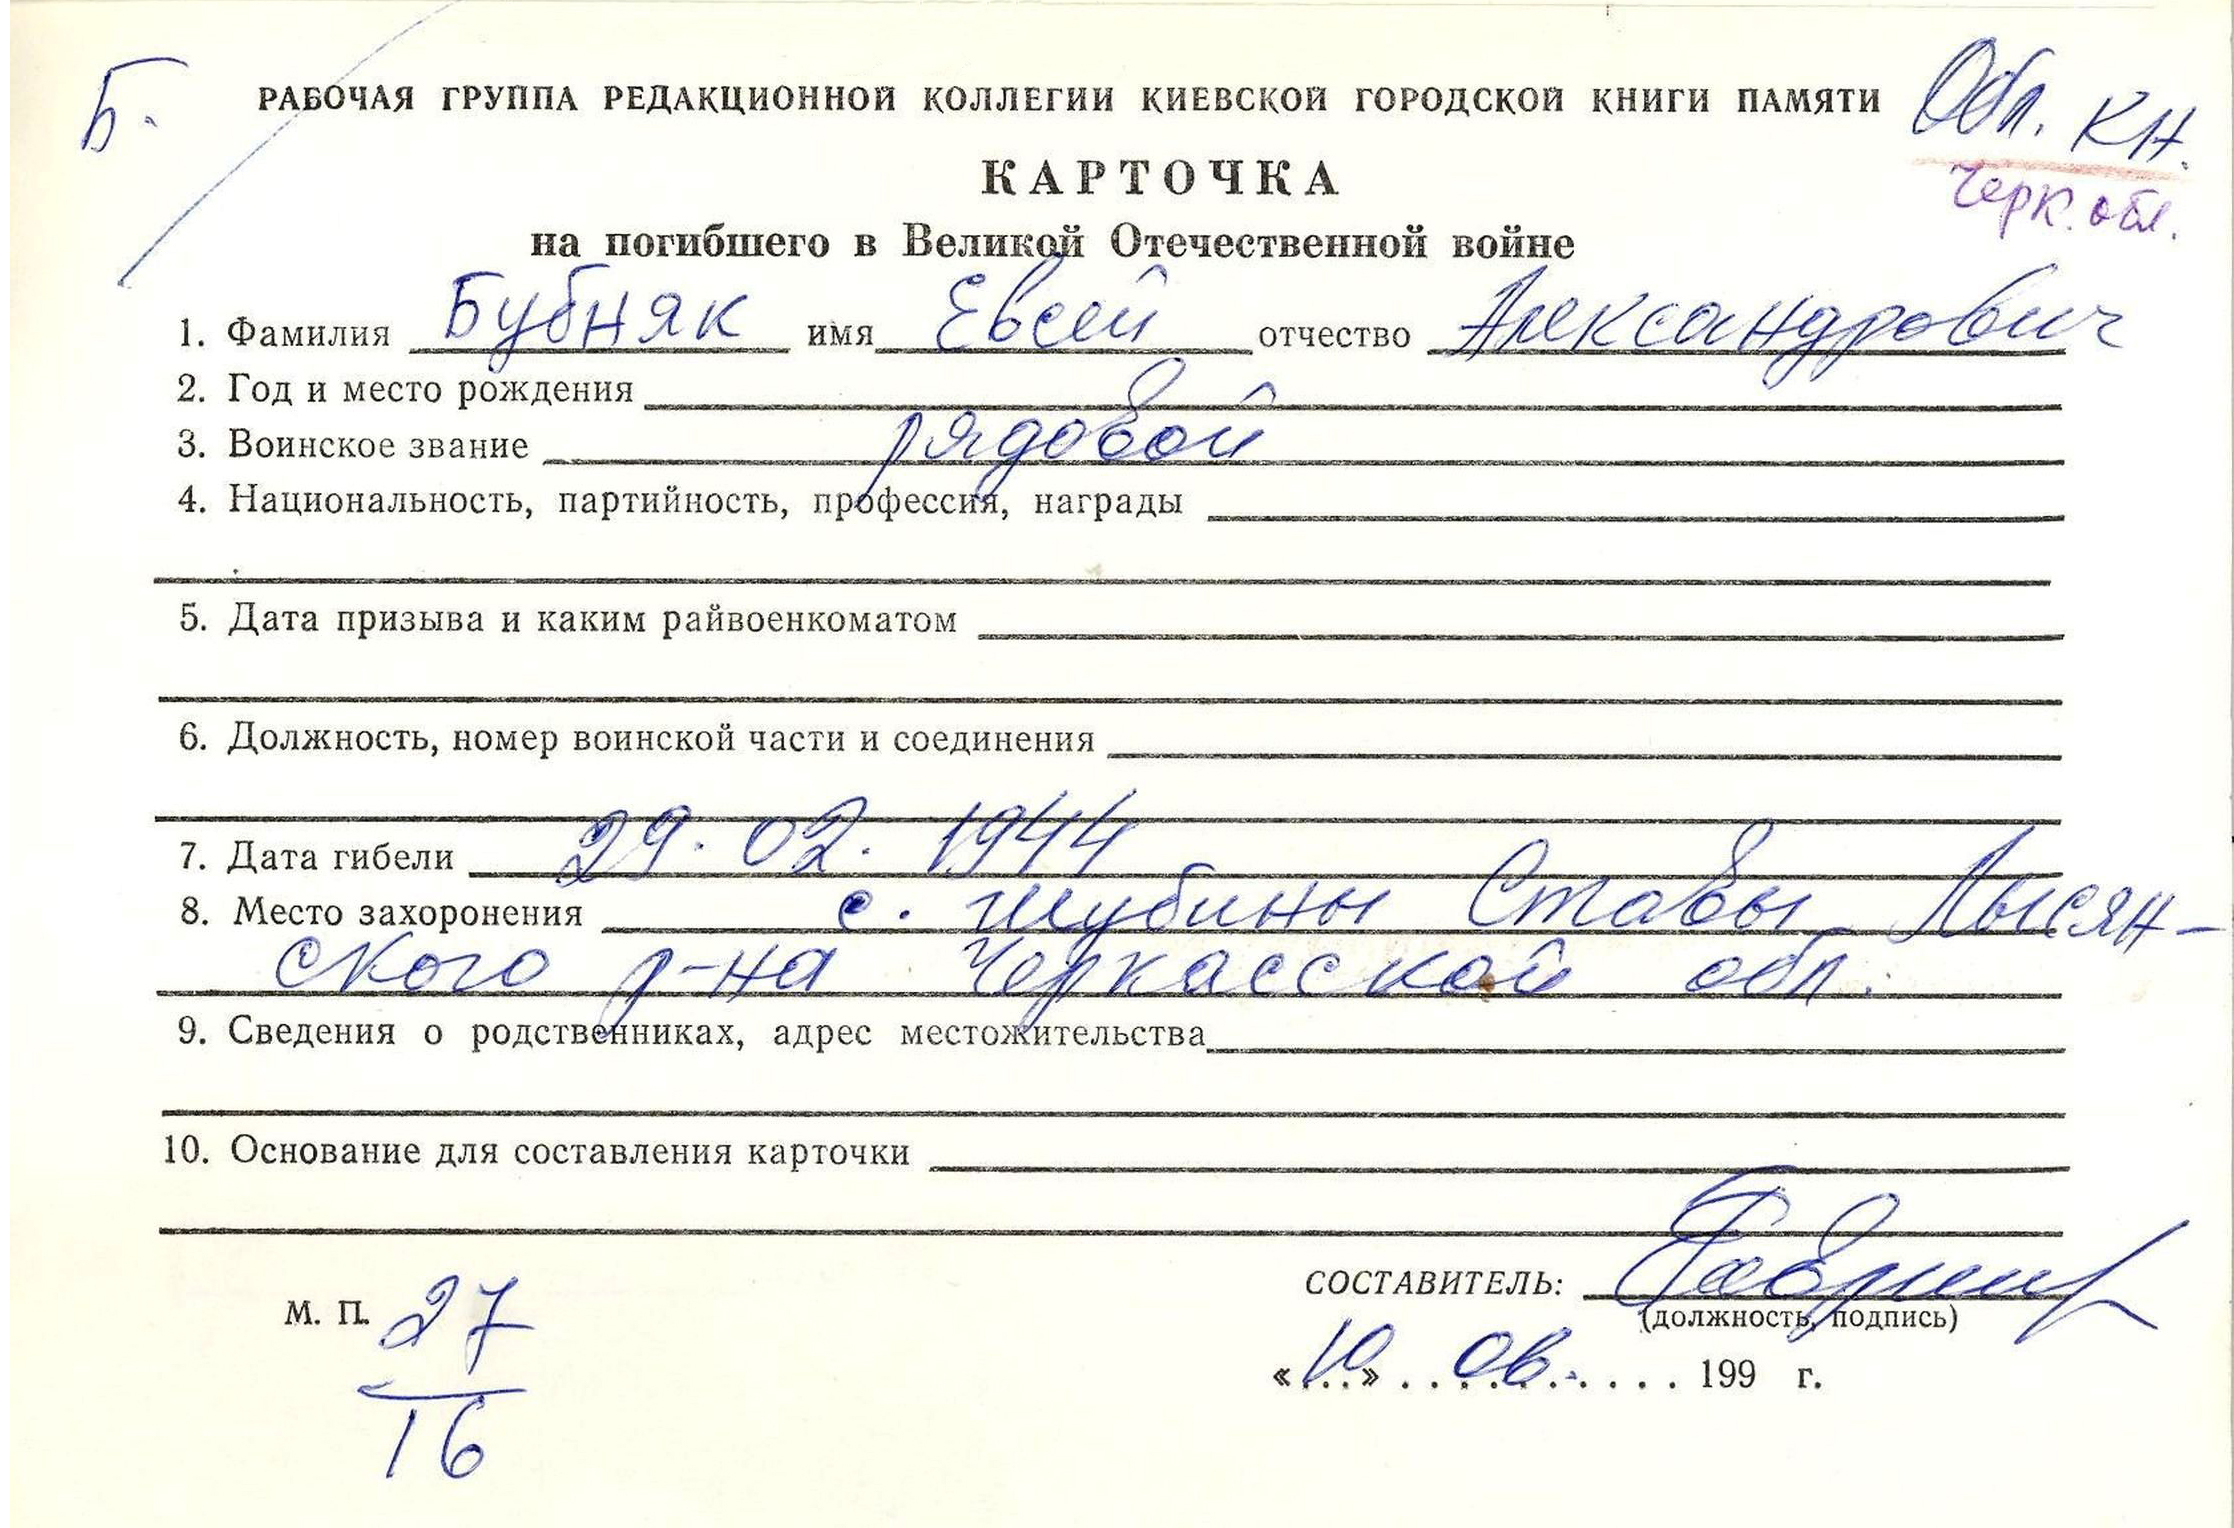 Б.
Обл. кн.
Черк. обл.
РАБОЧАЯ ГРУППА РЕДАКЦИОННОЙ КОЛЛЕГИИ КИЕВСКОЙ ГОРОДСКОЙ КНИГИ ПАМЯТИ
КАРТОЧКА
на погибшего в Великой Отечественной войне
1. Фамилия Бубняк имя Евсей отчество Александрович
2. Год и место рождения
3. Воинское звание рядовой
4. Национальность, партийность, профессия, награды
5. Дата призыва и каким райвоенкоматом
6. Должность, номер воинской части и соединения
7. Дата гибели 29.02.1944
8. Место захоронения с. Шубины Ставы Лысян-
ского р-на Черкасской обл.
9. Сведения о родственниках, адрес местожительства
10. Основание для составления карточки
СОСТАВИТЕЛЬ:
М. П. 27
(должность, подпись)
«10» 199 г.
16